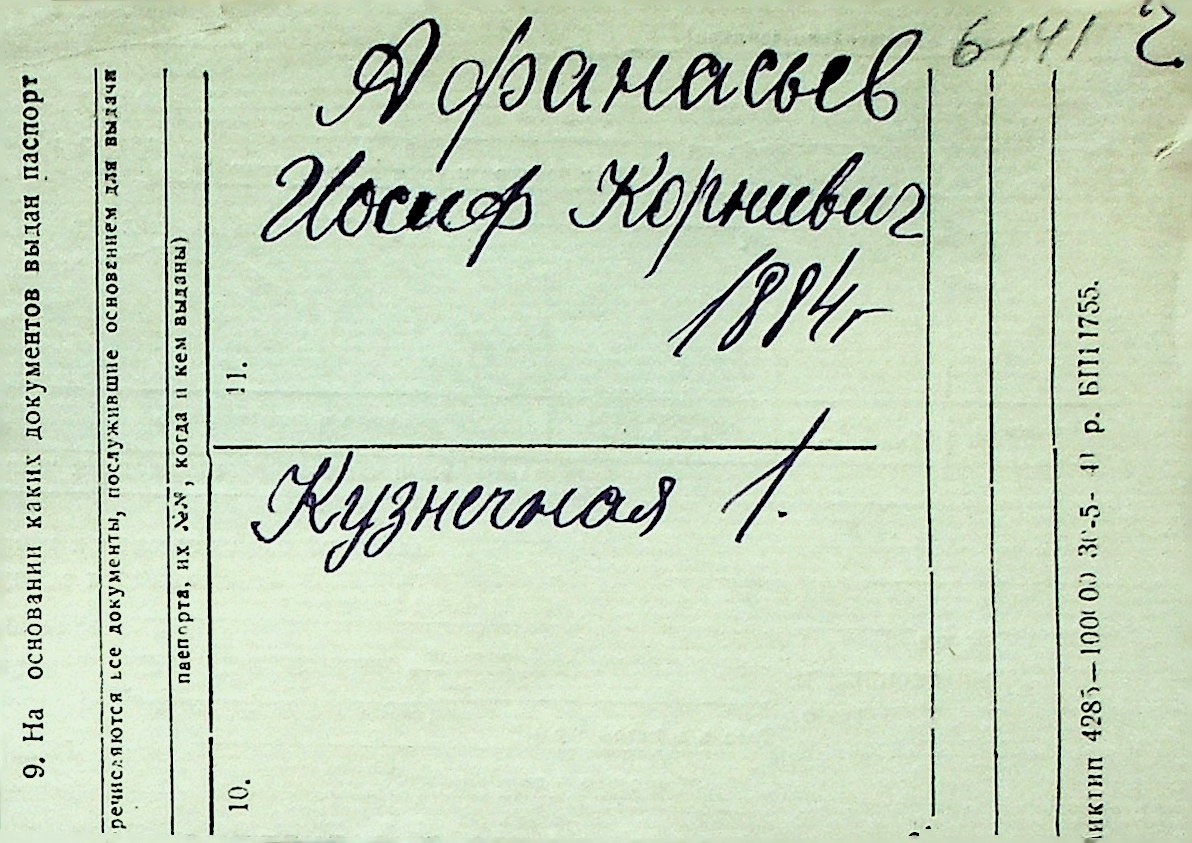 6141
Афанасьев
Иосиф Корниевич
1884г
Кузнечная 1.
9. На основании каких документов выдан паспорт
речисляются все документы, послужившие основением для выдачи
паепорта, их №№, когда и кем выданы)
11.
10.
4285—100000 30-5- 41 р. БП11755.